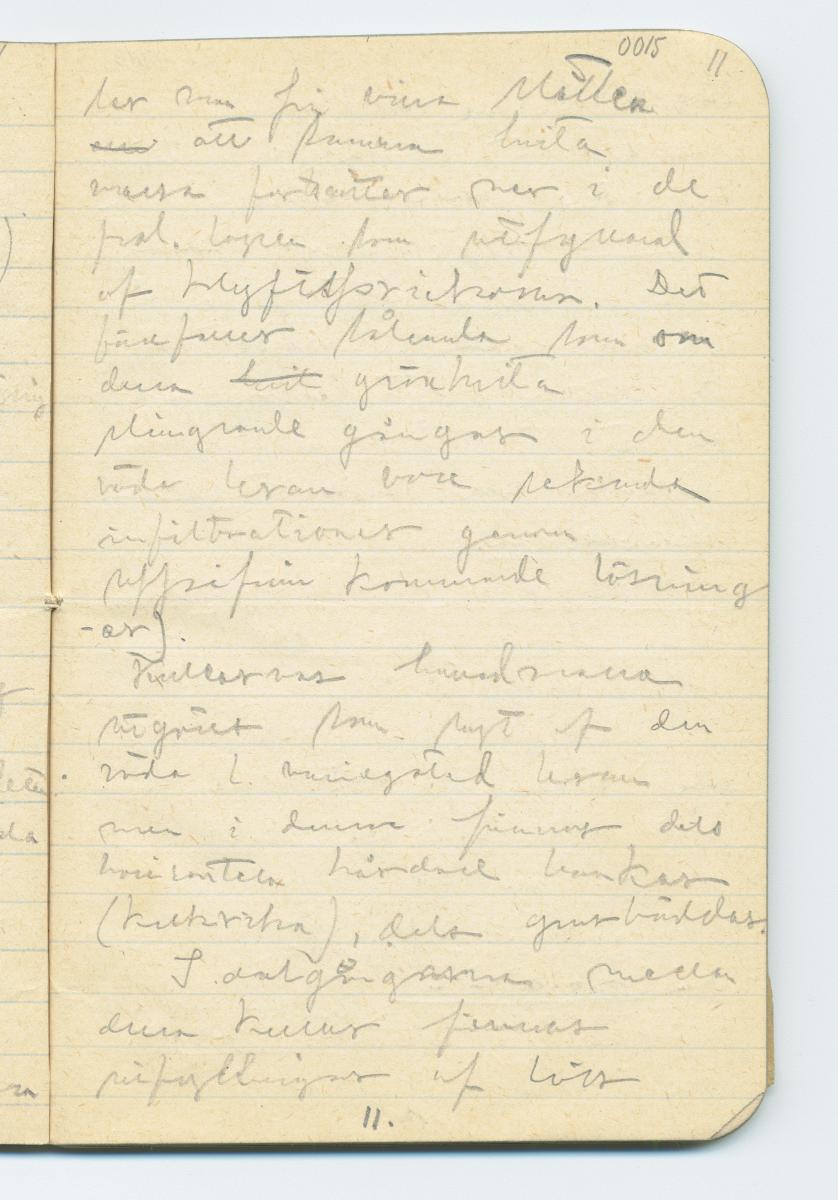 0015 11
ler man på vissa ställen
att samma hvita
massa fortsätter ner i de
som utfyllnad
af klyftsprickorna. Det
som om
dessa grönhvita
slingrande gångar i den
röda leran vore sekundä
infiltrationer genom
uppifrån kommande lösning
-ar).
Kullarnas hufvudmassa
utgöres som sagt af den
röda l. variegated leran
men i denna finnas dels
horisontela hårdare bankar
(kalkrika), dels grusbäddar.
I dalgångarna mellan
dessa kullar finnas
utfyllningar af löss
11.